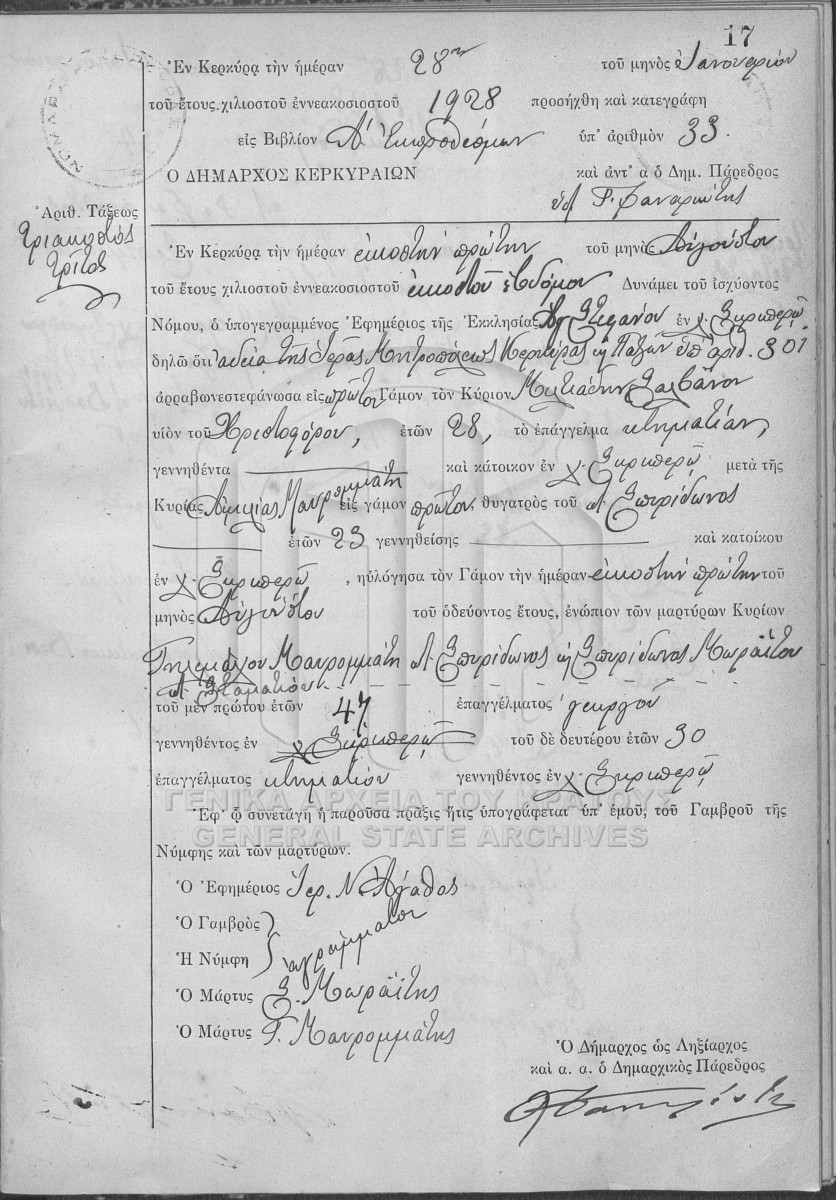 17
Ἐν Κερκύρᾳ τὴν ἡμέραν 28ην τοῦ μηνὸς Ἰανουαρίου
τοῦ ἔτους χιλιοστοῦ ἐννεακοσιοστοῦ 1928 προσήχθη καὶ κατεγράφη
εἰς Βιβλίον Α΄ Ἐκπροθέσμων ὑπ' ἀριθμὸν 33.
Ο ΔΗΜΑΡΧΟΣ ΚΕΡΚΥΡΑΙΩΝ καὶ ἀντ' α ὁ Δημ. Πάρεδρος
Ἀριθ. Τάξεως
Τριακοστός
Τρίτος
Ἐν Κερκύρᾳ τὴν ἡμέραν εἰκοστὴν πρώτην τοῦ μηνὸς Αὐγούστου
τοῦ ἔτους χιλιοστοῦ ἐννεακοσιοστοῦ εἰκοστοῦ ἑβδόμου Δυνάμει τοῦ ἰσχύοντος
Νόμου, ὁ ὑπογεγραμμένος Ἐφημέριος τῆς Ἐκκλησίας Ἁγ. Στεφάνου ἐν χ. Σκριπερῷ
δηλῶ ὅτι ἀδείᾳ τῆς Ἱερᾶς Μητροπόλεως Κερκύρας κ Παξῶν ὑπ' ἀριθ. 301
ἀρραβωνεστεφάνωσα εἰς πρῶτον Γάμον τὸν Κύριον Μιλτιάδην Σαλβάνον
υἱὸν τοῦ Χριστοφόρου, ἐτῶν 28, τὸ ἐπάγγελμα κτηματίαν,
γεννηθέντα καὶ κάτοικον ἐν χ. Σκριπερῷ μετὰ τῆς
Κυρίας Αἰμιλίας Μαυρομμάτη εἰς γάμον πρῶτον, θυγατρὸς τοῦ Σπυρίδωνος
ἐτῶν 23 γεννηθείσης καὶ κατοίκου
ἐν χ. Σκριπερῷ, ηὐλόγησα τὸν Γάμον τὴν ἡμέραν εἰκοστὴν πρώτην τοῦ
μηνὸς Αὐγούστου τοῦ ὁδεύοντος ἔτους, ἐνώπιον τῶν μαρτύρων Κυρίων
Τηλεμάχου Μαυρομμάτη Σπυρίδωνος κ Σπυρίδωνος Μωραΐτου
Σταματίου
τοῦ μὲν πρώτου ἐτῶν 47 ἐπαγγέλματος γεωργοῦ
γεννηθέντος ἐν χ. Σκριπερῷ τοῦ δὲ δευτέρου ἐτῶν 30
ἐπαγγέλματος κτηματίου γεννηθέντος ἐν χ. Σκριπερῷ
ΓΕΝΙΚΑ ΑΡΧΕΙΑ ΤΟΥ ΚΡΑΤΟΥΣ
Ἐφ' ᾧ συνετάγη ἡ παροῦσα πρᾶξις ἥτις ὑπογράφεται ὑπ' ἐμοῦ, τοῦ Γαμβροῦ τῆς
GENERAL STATE ARCHIVES
Νύμφης καὶ τῶν μαρτύρων.
Ὁ Ἐφημέριος Ἱερ. Ν. Ἀγάθος
Ὁ Γαμβρὸς
Ἡ Νύμφη ἀγράμματοι
Ὁ Μάρτυς Σ. Μωραΐτης
Ὁ Μάρτυς Τ. Μαυρομμάτης
Ὁ Δήμαρχος ὡς Ληξίαρχος
καὶ α. α. ὁ Δημαρχικὸς Πάρεδρος